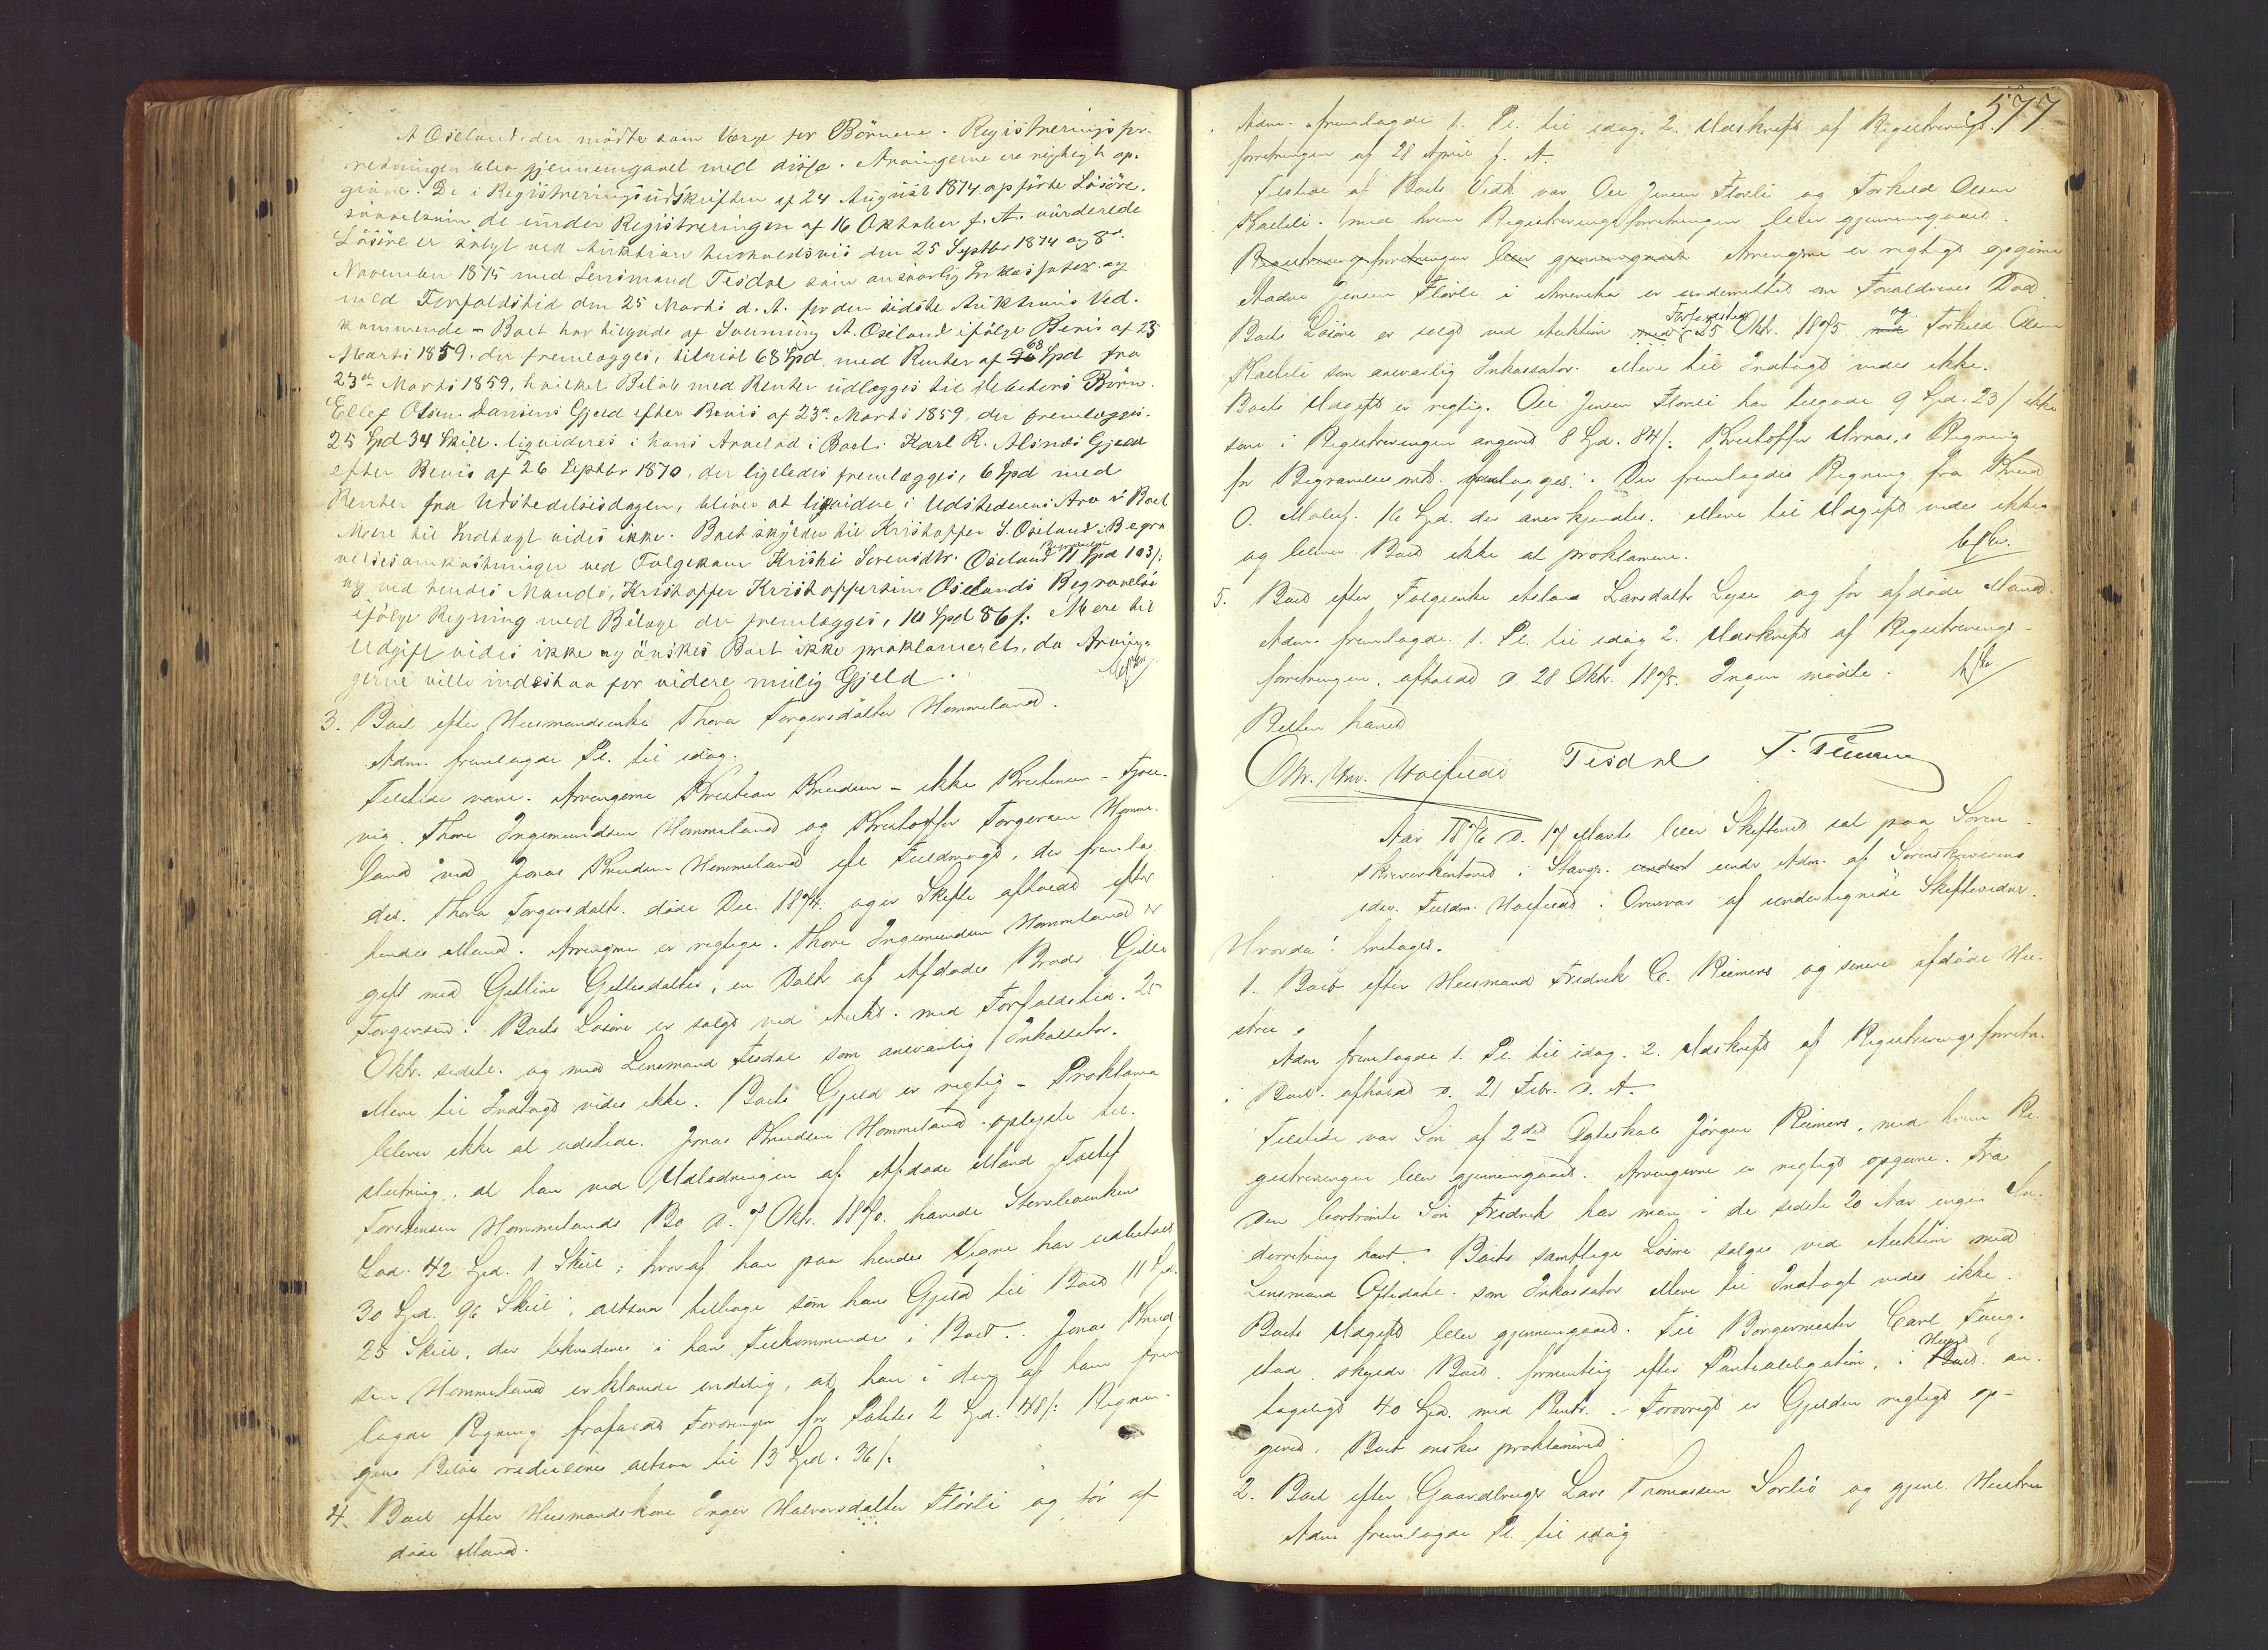 A Öseland. der mödte som Verge for Börnene. Registreringsfor-
retningen blev gjennemgaaet med disse. Arvingerne ere rigtigt op-
givne. De i Registreringsudskriften af 24 August 1874 opförte Lösöre,
saavelsom de under Registreringen af 16 Oktober f. A. vurderede
Lösöre er solgt ved Auktion henholdsvis den 25 Septbr 1874 og 8de
November 1875 med Lensmand Tisdal som ansvarlig Inkassator og
med Forfaldstid den 25 Marts d. A. for den sidste Auktions Ved-
kommende - Boet har tilgode af Svenning A. Öseland ifölge Bevis af 23
Marts 1859, der fremlægges, tilrest 68 Spd med Renter af 68 Spd fra
23de Marts 1859, hvilket Belöb med Renter udlægges til Debitors Börn.
Ellef Olsen Dansens Gjeld efter Bevis af 23de Marts 1859, der fremlægges.
25 Spd 34 Skill. liqvideres i hans Arvelod i Boet. Karl R. Alsnes Gjeld
efter Bevis af 26 Septbr 1870, der ligeledes fremlægges, 6 Spd med
Renter fra Udstedelsesdagen, bliver at liqvidere i Udstederens Arv i Boet
Mere til Indtægt vides ikke. Boet skylder til Kristoffer S. Öseland i Begra
velsesomkostninger ved Folgekone Kristi Sorensdtr. Öselands Begravelse 11 Spd 103/:
og ved hendes Mands, Kristoffer Kristoffersens Öselands Begravelse
ifölge Regning med Bilage der fremlægges, 10 Spd 86/: Mere til
Udgift vides ikke og önskes Boet ikke proklameret, da Arvin-
gerne ville indestaa for videre mulig Gjeld.
3. Boet efter Huusmandsenke Thora Torgersdatter Hommeland.
Adm. fremlagde Pl. til idag.
Tilstede vare. Arvingerne Kristian Knudsen - ikke Kristensen - Fjose-
vig. Thore Ingemundsen Hommeland og Kristoffer Torgersen Homme-
land ved Jonas Knudsen Hommeland efl. Fuldmagt, der fremlag-
des. Thora Torgersdattr. døde Dec. 1874. og er Skifte afholdt efter
hendes Mand. Arvingerne er rigtige. Thore Ingemundsen Hommeland er
gift med Gitline Gitlesdatter, en Dattr af Afdødes Broder Gitle
Torgersen. Boets Løsøre er solgt ved Aukt. med Forfaldstid 25
Oktr. sidstl. og med Lensmand Tisdal som ansvarlig Inkassator.
Mere til Indtægt vides ikke. Boets Gjeld er rigtig - Proklama
bliver ikke at udstede. Jonas Knudsen Hommeland oplyste til-
slutning, at han ved Udlodningen af Afdøde Mand Tollef
Torstensen Hommelands Bo d. 7 Oktr. 1870. havde Stervboenkens
Lod 42 Spd. 1 Skill; hvoraf han paa hendes Vegne har udbetalt
30 Spd. 96 Skill; altsaa tilbage som hans Gjeld til Boet 11 Spd.
25 Skill, der likvideres i hans Tilkommende i Boet. Jonas Knud-
sen Hommeland erklærede endelig, at han i den af ham frem-
lagde Regning frafaldt Fordringen for Poteter 2 Spd. 48/: Regnin-
gens Beløb reduceres altsaa til 13 Spd. 36/:
4. Boet efter Huusmandskone Inger Halvorsdatter Flörli og før af-
døde Mand.
577
Adm. fremlagde 1. Pl. til idag. 2. Udskrift af Registrerings-
forretningen af 28 April f. A.
Tilstede af Boets Vedk. var Ole Jensen Flörli og Torkild Olsen
Kalleli. med hvem Registreringsforretningen blev gjennemgaaet.
Registreringsforretningen blev gjennemgaaet Arvingerne er rigtigt opgivne
Aadne Jensen Flörli i Amerika er underrettet om Forældrenes Død.
Boets Løsøre er solgt ved Auktion med Forfaldstid 25 Oktr. 1875 og med Torkild Olsen
Kalleli som ansvarlig Inkassator. Mere til Indtægt vides ikke.
Boets Udgift er rigtig. Ole Jensen Flörli har tilgode 9 Spd. 23/ ikke
som i Registreringen angivet 8 Spd. 84/: Kristoffer Urnas,s Regning
for Begravelsesomk. fremlægges. Der fremlagdes Regning fra Knud
O. 16 Spd. der anerkjendtes. Mere til Udgift vides ikke
og bliver Boet ikke at proklamere.
5. Boet efter Folgeenke Larsdattr Lyse og før afdøde Mand.
Adm. fremlagde. 1. Pl. til idag 2. Udskrift af Registrerings-
forretningen, afholdt d. 28 Oktr. 1875. Ingen mødte.
Retten hævet
Tisdal
Aar 1876 d. 17 Marts blev Skifteret sat paa Soren-
skriverkontoret i Stavgr. under Adm. af Sorenskriverens
edsv. Fuldm. Hovfeldt i Overvær af undertegnede Skiftevidner.
Hvorda! foretoges.
1. Boet efter Huusmand Fredrik C. Reimers og senere afdøde Hu-
stru.
Adm fremlagde 1. Pl. til idag. 2. Udskrift af Registreringsforretn.
i Boet. afholdt d. 21 Febr. d. A.
Tilstede var Søn af 2det Ægteskab Jørgen Reimers, med hvem Re-
gistreringen blev gjennemgaaet. Arvingerne er rigtigt opgivne. Fra
den bortrømte Søn Fredrik har man i de sidste 20 Aar ingen Un-
derretning havt. Boets samtlige Løsøre solges ved Auktion med
Lensmand Aftedahl som Inkassator Mere til Indtægt vides ikke.
Boets Udgift blev gjennemgaaet. Til Borgermester Carl Foug-
stad skylder Boet formentlig efter Pantobligation, i Huset Boet an-
tageligt 40 Spd. med Rentr. - Forøvrigt er Gjelden rigtigt op-
givet. Boet ønskes proklameret
2. Boet efter Gaardbruger Lars Thomassen Sorlie og gjenl. Hustru
Adm fremlagde Pl. til idag